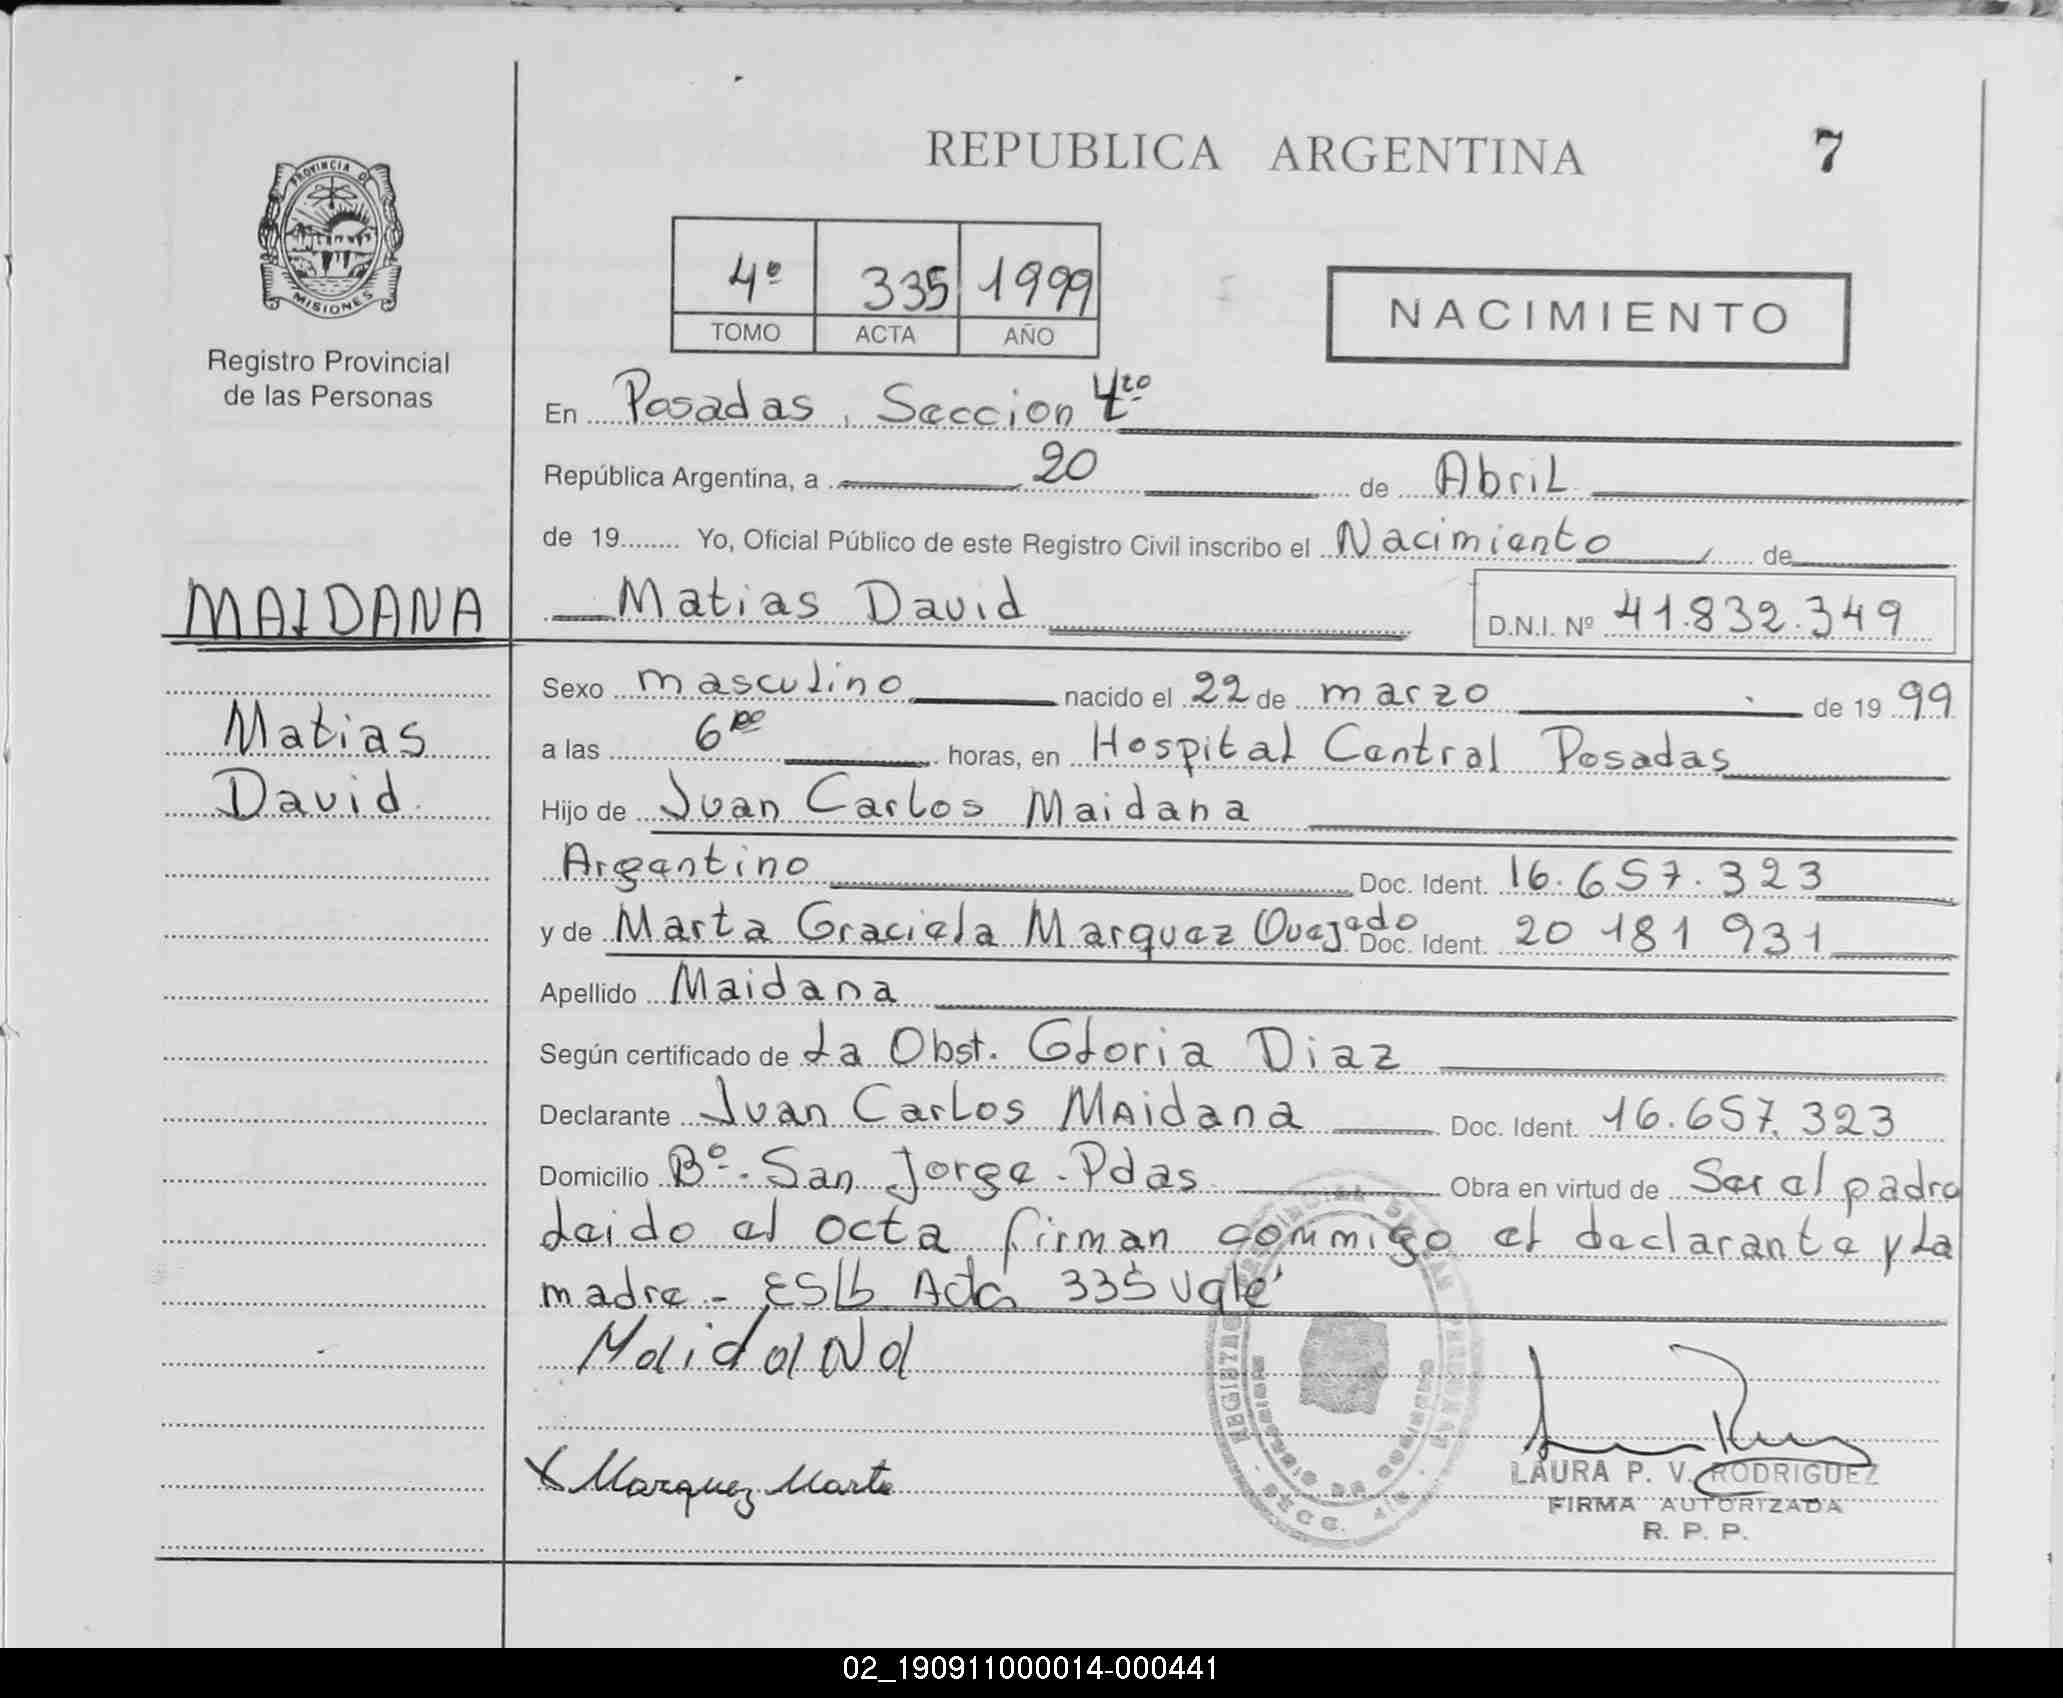 REPUBLICA ARGENTINA
7
PROVINCIA DE
MISIONES
Registro Provincial
de las Personas
4º 335 1999
TOMO ACTA AÑO
NACIMIENTO
En Posadas, Seccion 4ta
República Argentina, a 20 de Abril
de 19........ Yo, Oficial Público de este Registro Civil inscribo el Nacimiento de
MAIDANA
Matias David
D.N.I. Nº 41.832.349
Sexo masculino nacido el 22 de marzo de 1999
Matias
David
a las 6 00 horas, en Hospital Central Posadas
Hijo de Juan Carlos Maidana
Argentino Doc. Ident. 16.657.323
y de Marta Graciela Marquez Ouejado Doc. Ident. 20 181 931
Apellido Maidana
Según certificado de La Obst. Gloria Diaz
Declarante Juan Carlos MAidana Doc. Ident. 16.657.323
Domicilio Bº. San Jorge - Pdas Obra en virtud de Ser el padre
Leido el acta firman conmigo el declarante y La
madre - ES/b Acta 335 Vale
MaidaNa
X Marquez Marta
LAURA P. V. RODRIGUEZ
FIRMA AUTORIZADA
R. P. P.
02_190911000014-000441